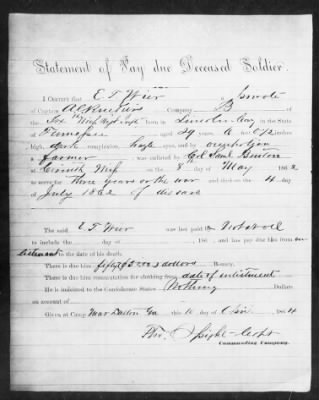 Statement of Pay due Deceased Soldier.
I CERTIFY that E T Wier a private
of Captain Company B
of the Miss Regt born in Lincoln County in the State
of Tennessee aged 29 years 6 feet
high, dark complexion, eyes, and by occupation
a farmer was enlisted by Col Saml Benton
at Corinth Miss on the 8 day of May 1862
to serve for three years or the war and died on the 4 day
of July 1862 of disease
The said E T Wier was last paid to Not at all
to include the day of 186 , and has pay due him from en
listment to the date of his death.
There is due him fifty dollars Bounty.
There is due him commutation for clothing from date of enlistment
He is indebted to the Confederate States Nothing Dollars
on account of
Given at Camp near Dalton Ga this 10 day of 1864
Capt
Commanding Company.